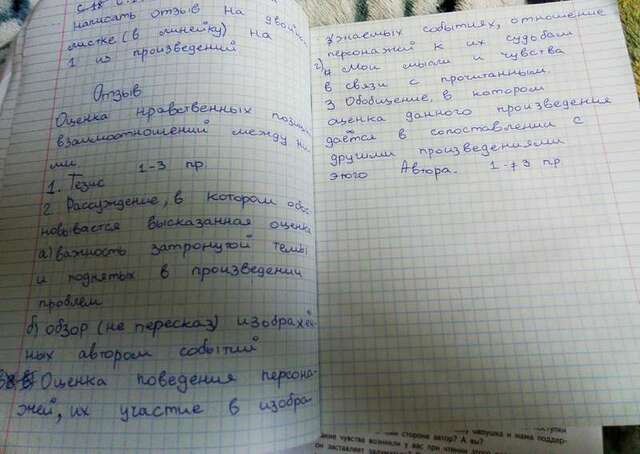 написать отзыв на двойн
листке (в линейку) на
1 из произведений
Отзыв
Оценка нравственных позиц
взаимоотношений между ни-
ми.
1. Тезис 1-3 пр.
2. Рассуждение, в котором обос-
новывается высказанная оценка
а) важность затронутой темы
и поднятых в произведении
проблем
б) обзор (не пересказ) изображён-
ных автором событий
в) Оценка поведения персона-
жей, их участие в изобра
жаемых событиях, отношение
персонажей к их судьбам
г) Мои мысли и чувства
в связи с прочитанным.
3 Обобщение, в котором
оценка данного произведения
даётся в сопоставлении с
другими произведениями
этого Автора. 1-3 пр
сторона автор? А вы?
чувства возникли у вас при чтении этого
он заставляет